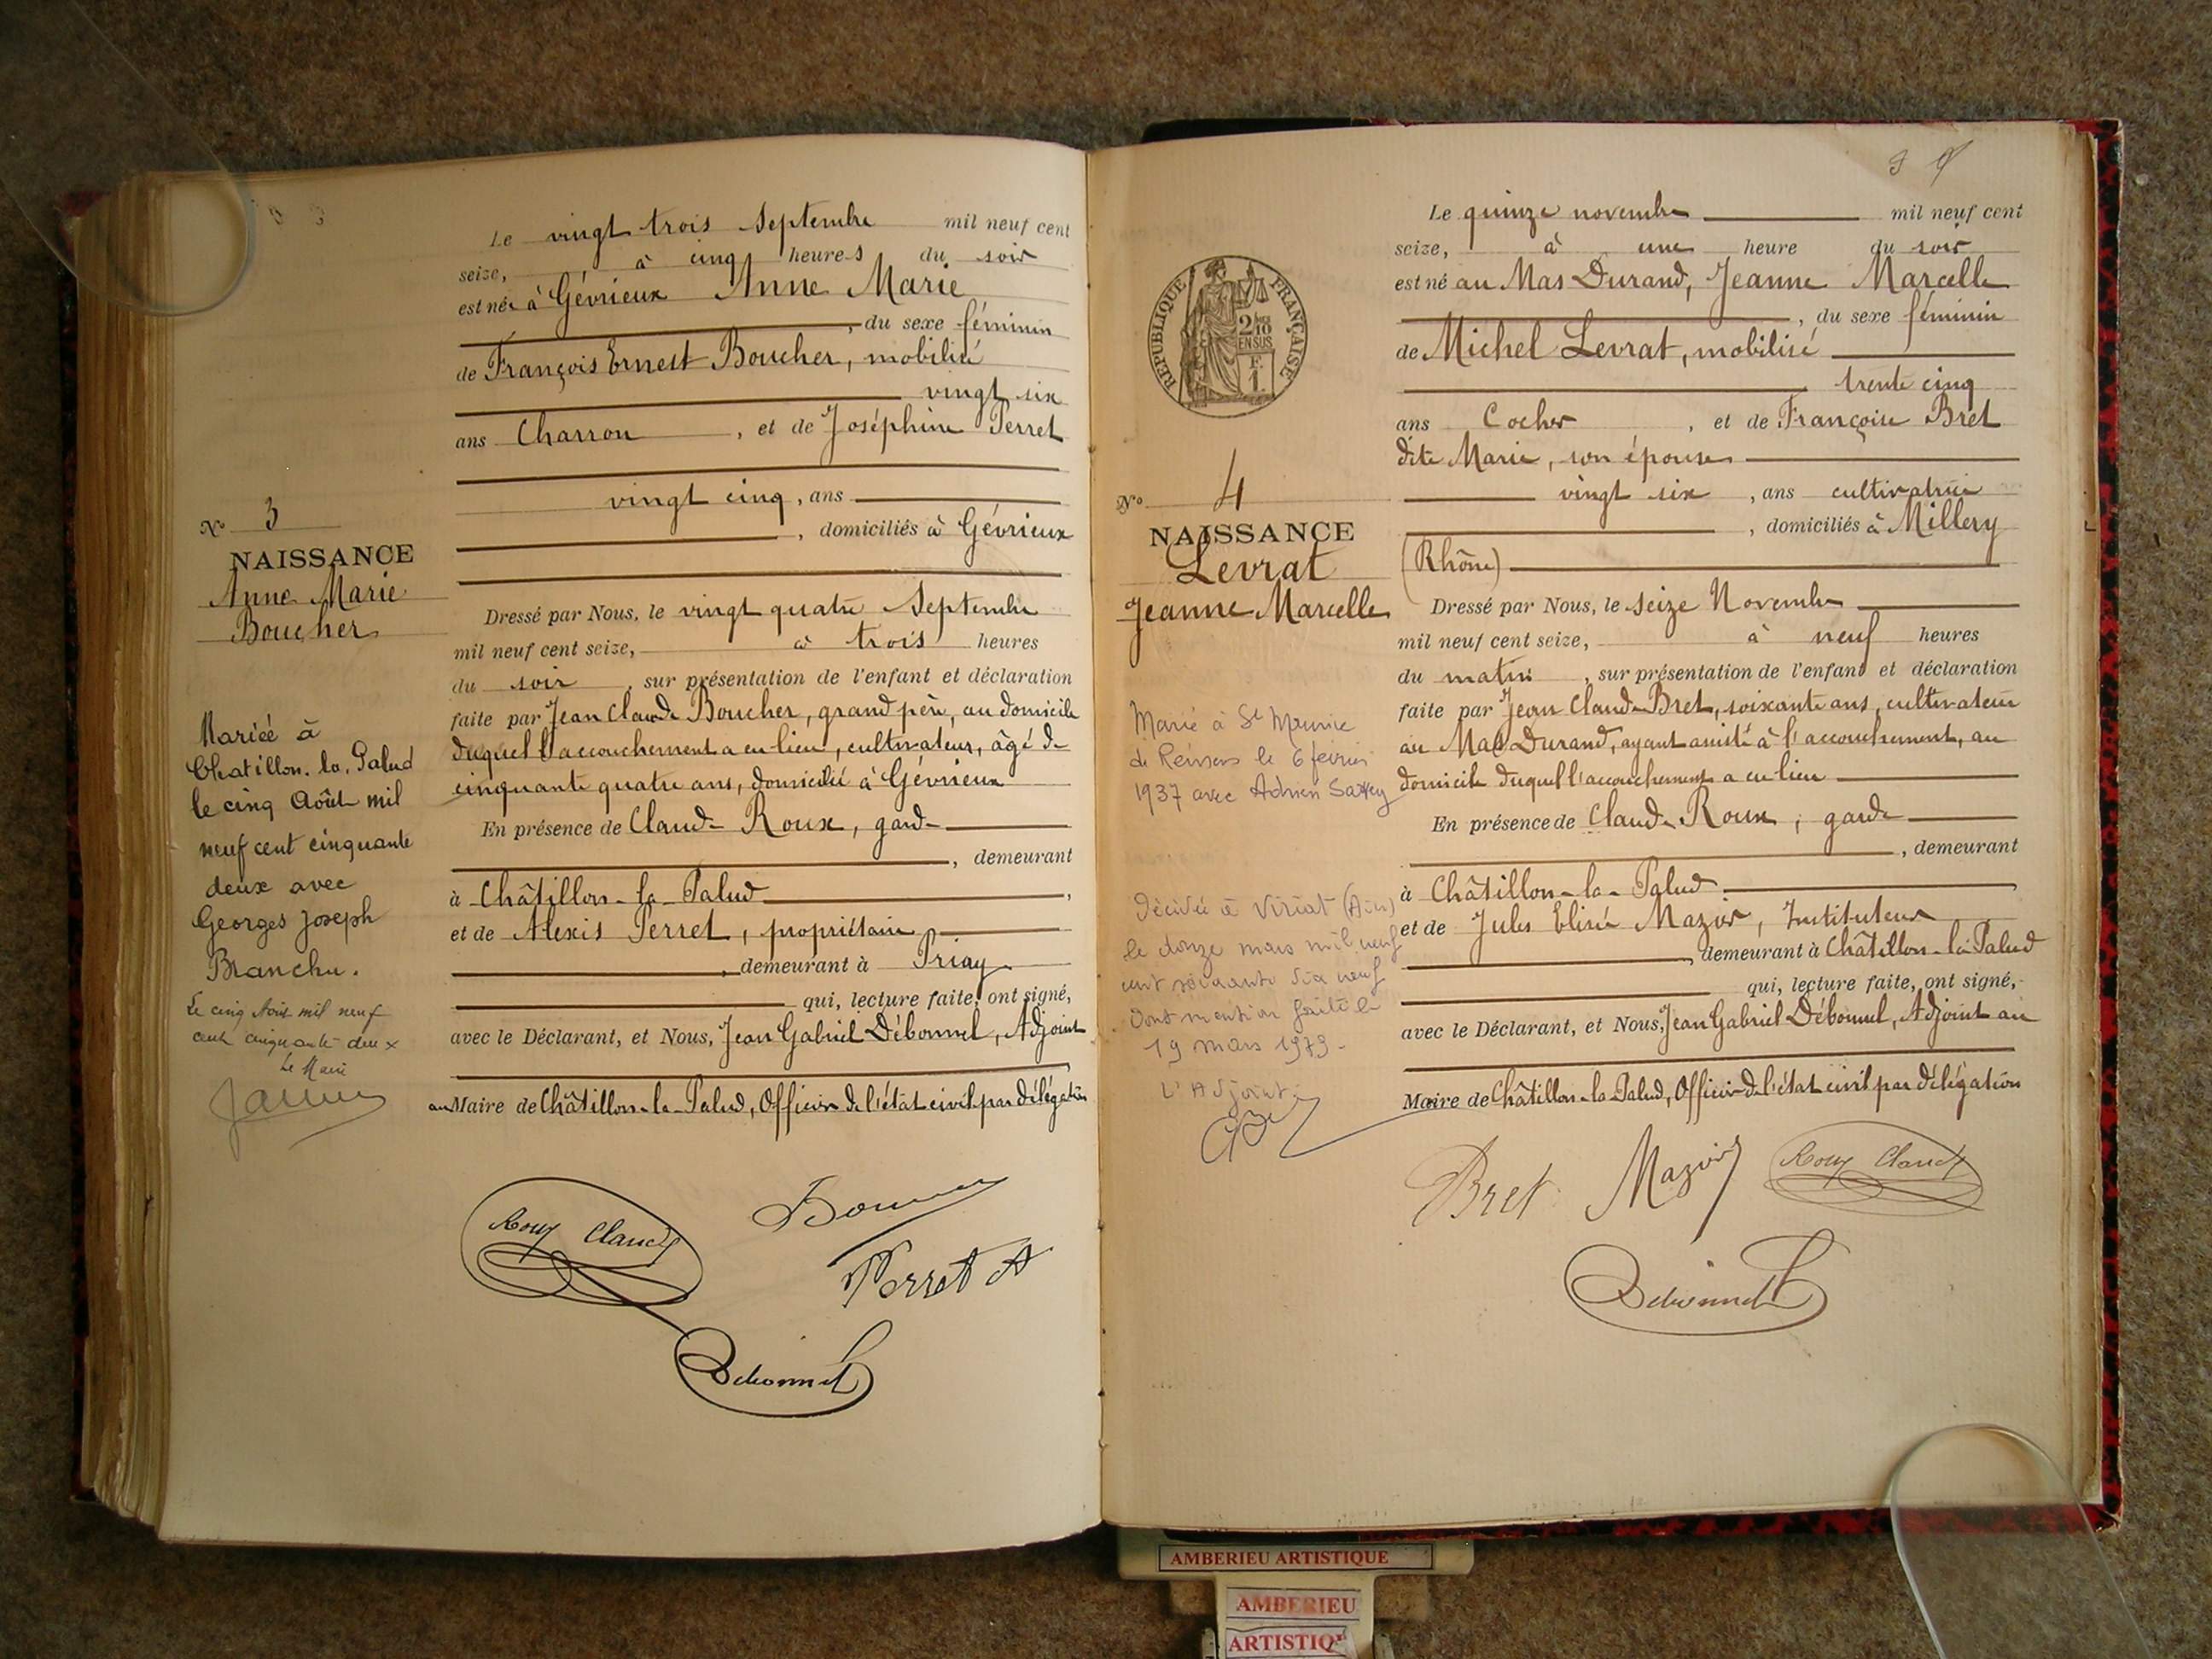 Le vingt trois Septembre mil neuf cent
seize, à cinq heures du soir
est née à Gévrieux Anne Marie
, du sexe féminin
de François Ernest Boucher, mobilisé
vingt six
ans Charron , et de Joséphine Perret
vingt cinq , ans
, domiciliés à Gévrieux
Nº 3
NAISSANCE
Anne Marie
Boucher
Dressé par Nous, le vingt quatre Septembre
mil neuf cent seize, à trois heures
du soir , sur présentation de l'enfant et déclaration
faite par Jean Claude Boucher, grand père, au domicile
duquel l'accouchement a eu lieu, cultivateur, âgé de
cinquante quatre ans, domicilié à Gévrieux
En présence de Claude Roux, garde
, demeurant
à Châtillon-la-Palud ,
et de Alexis Perret, propriétaire
, demeurant à Priay
qui, lecture faite, ont signé,
avec le Déclarant, et Nous, Jean Gabriel Débonnel, Adjoint
au Maire de Châtillon-la-Palud, Officier de l'état civil par délégation
Mariée à
Chatillon-la-Palud
le cinq Août mil
neuf cent cinquante
deux avec
Georges Joseph
Branchu.
Le cinq Août mil neuf
cent cinquante deux
Le Maire
Roux Claude
Perret A
Debonnel
3
Le quinze novembre mil neuf cent
seize, à une heure du soir
est né au Mas Durand, Jeanne Marcelle
, du sexe féminin
de Michel Levrat, mobilisé
trente cinq
ans Cocher , et de Françoise Bret
dite Marie, son épouse
vingt six , ans cultivatrice
, domiciliés à Millery
(Rhône)
REPUBLIQUE FRANÇAISE
2/10
EN SUS
F.
1.
Nº 4
NAISSANCE
Levrat
Jeanne Marcelle
Dressé par Nous, le seize Novembre
mil neuf cent seize, à neuf heures
du matin , sur présentation de l'enfant et déclaration
faite par Jean Claude Bret, soixante ans, cultivateur
au Mas Durand, ayant assisté à l'accouchement, au
domicile duquel l'accouchement a eu lieu
En présence de Claude Roux, garde
, demeurant
à Châtillon-la-Palud
et de Jules Elisée Mazoir, Instituteur
, demeurant à Châtillon-la-Palud
qui, lecture faite, ont signé,
avec le Déclarant, et Nous, Jean Gabriel Débonnel, Adjoint au
Maire de Châtillon-la-Palud, Officier de l'état civil par délégation
Marié à St Maurice
de Remens le 6 février
1937 avec Adrien
Décédée à Viriat (Ain)
le douze mars mil neuf
cent soixante dix neuf
Dont mention faite le
19 mars 1979-
L'Adjoint:
Bret Mazoir Roux Claude
Debonnel
AMBERIEU ARTISTIQUE
AMBERIEU
ARTISTIQ